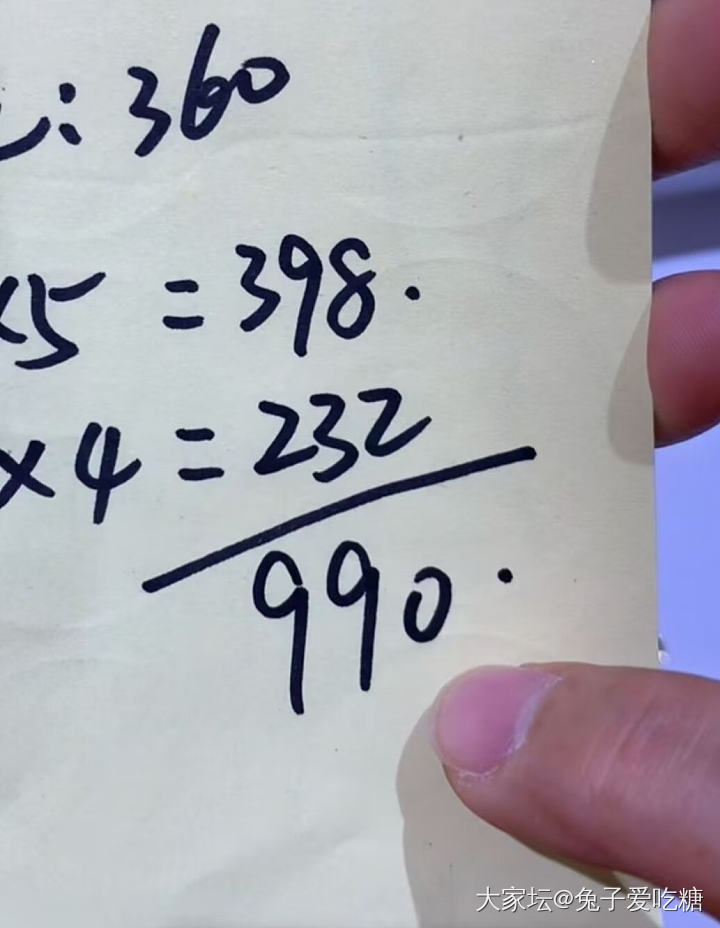 : 360
×5 = 398.
×4 = 232
990.
大家坛@兔子爱吃糖